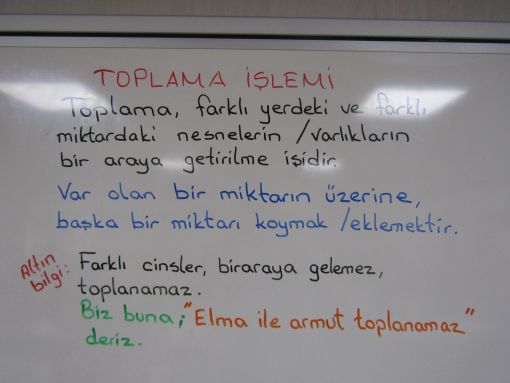 TOPLAMA İŞLEMİ
Toplama, farklı yerdeki ve farklı
miktardaki nesnelerin / varlıkların
bir araya getirilme işidir.
Var olan bir miktarın üzerine,
başka bir miktarı koymak / eklemektir.
Altın bilgi: Farklı cinsler, biraraya gelemez,
toplanamaz.
Biz buna; "Elma ile armut toplanamaz"
deriz.